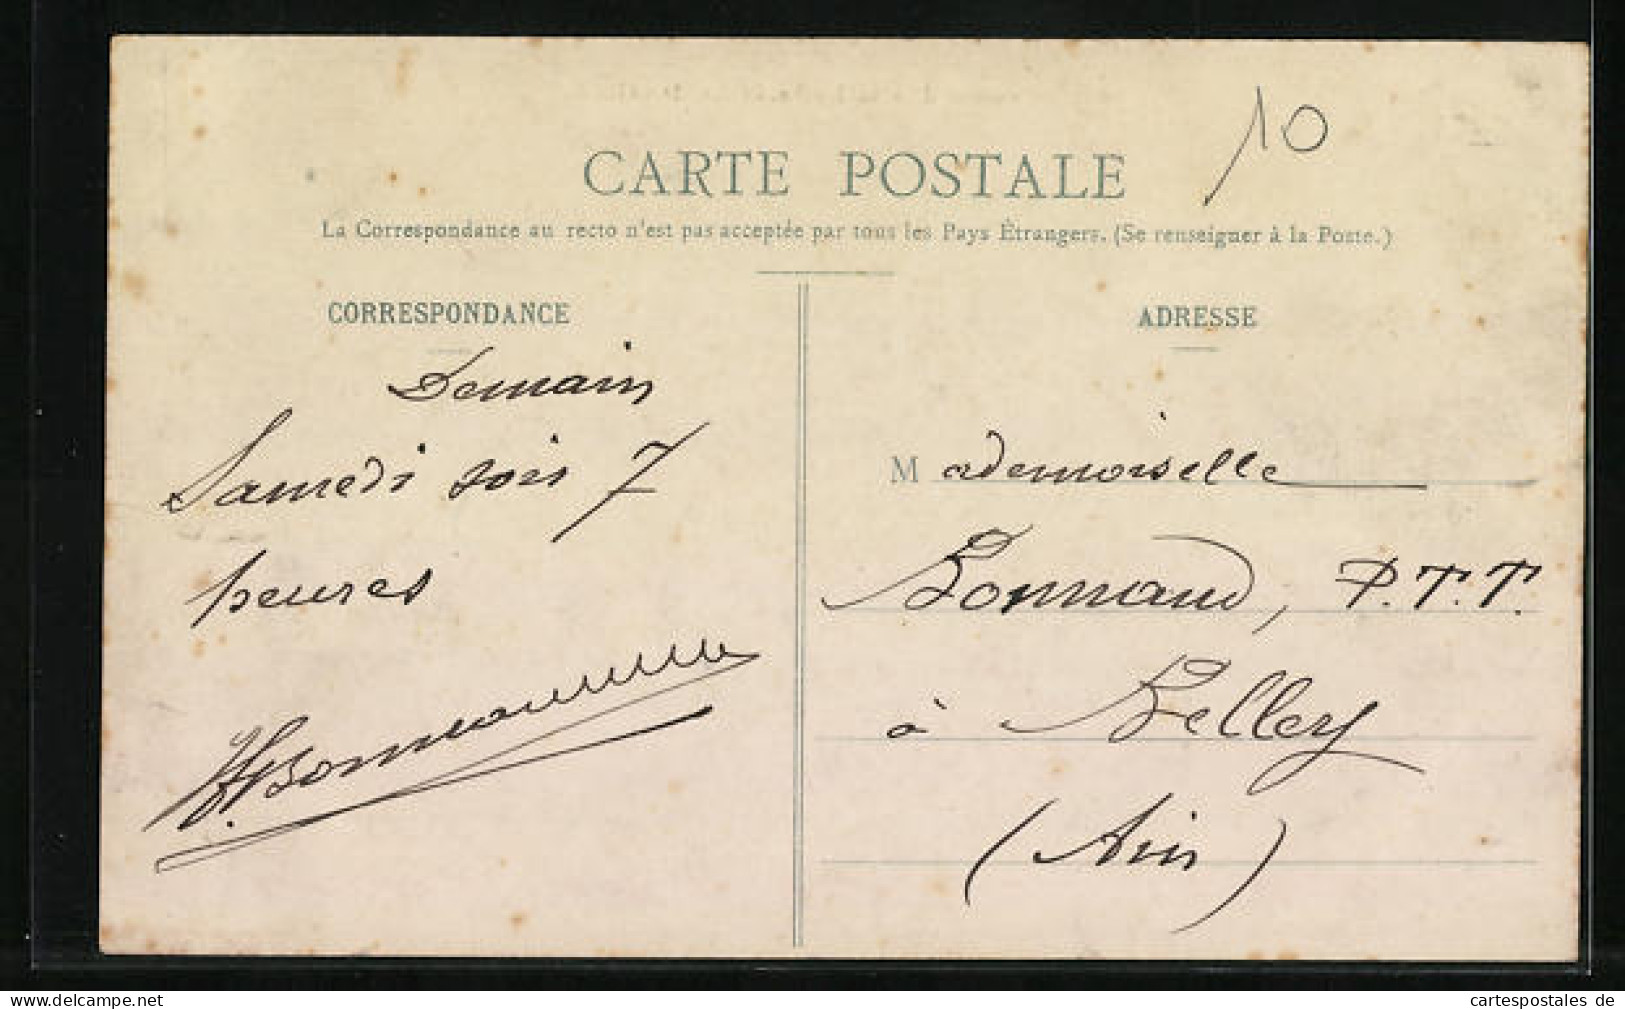 10
CARTE POSTALE
La Correspondance au recto n'est pas acceptée par tous les Pays Étrangers. (Se renseigner à la Poste.)
CORRESPONDANCE
Demain
Samedi soir 7
heures
ADRESSE
Mademoiselle
Bonnand, P.T.T.
à Belley
(Ain)
cartespostales de